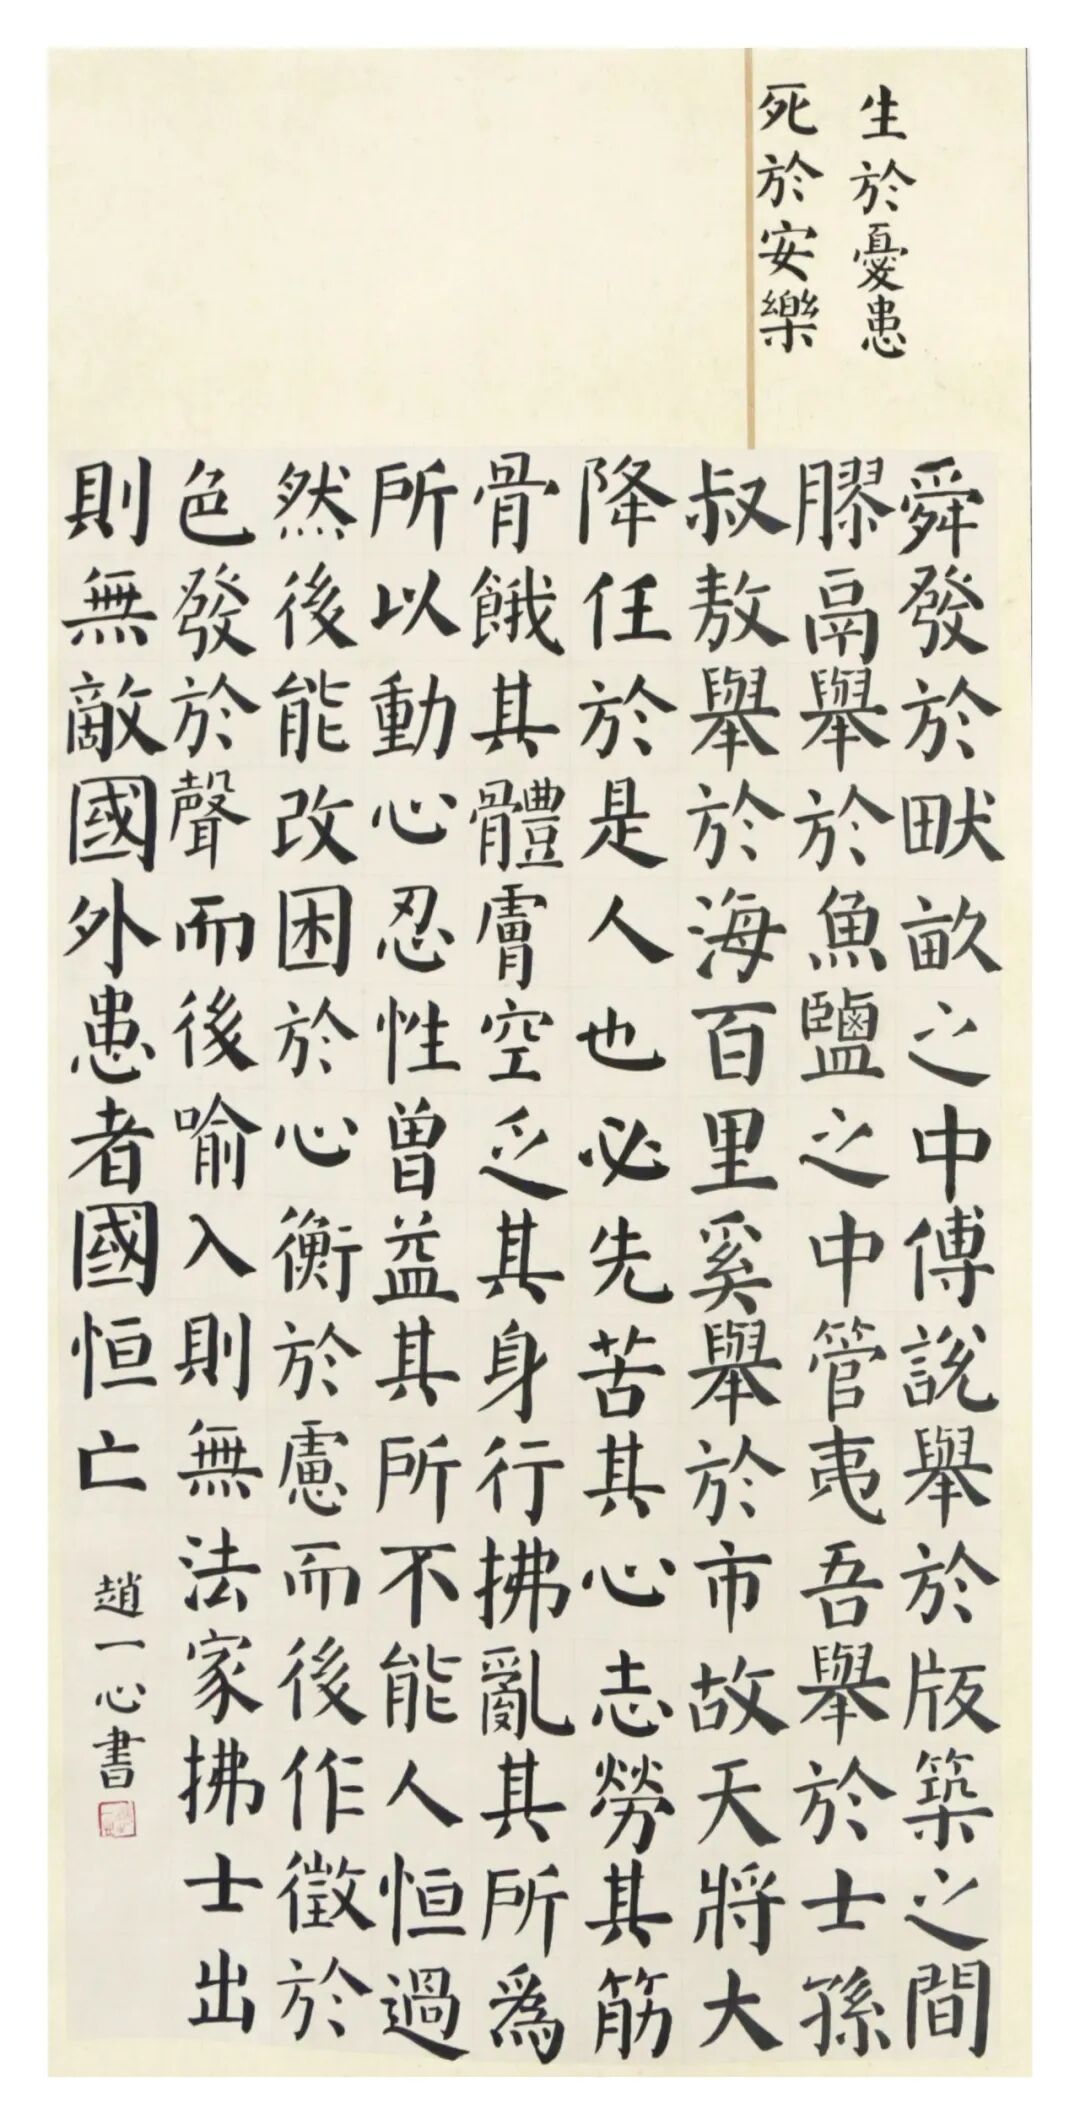 生於憂患
死於安樂
舜發於畎畝之中傅說舉於版築之間
膠鬲舉於魚鹽之中管夷吾舉於士孫
叔敖舉於海百里奚舉於市故天將大
降任於是人也必先苦其心志勞其筋
骨餓其體膚空乏其身行拂亂其所為
所以動心忍性曾益其所不能人恒過
然後能改困於心衡於慮而後作徵於
色發於聲而後喻入則無法家拂士出
則無敵國外患者國恒亡
趙一心書